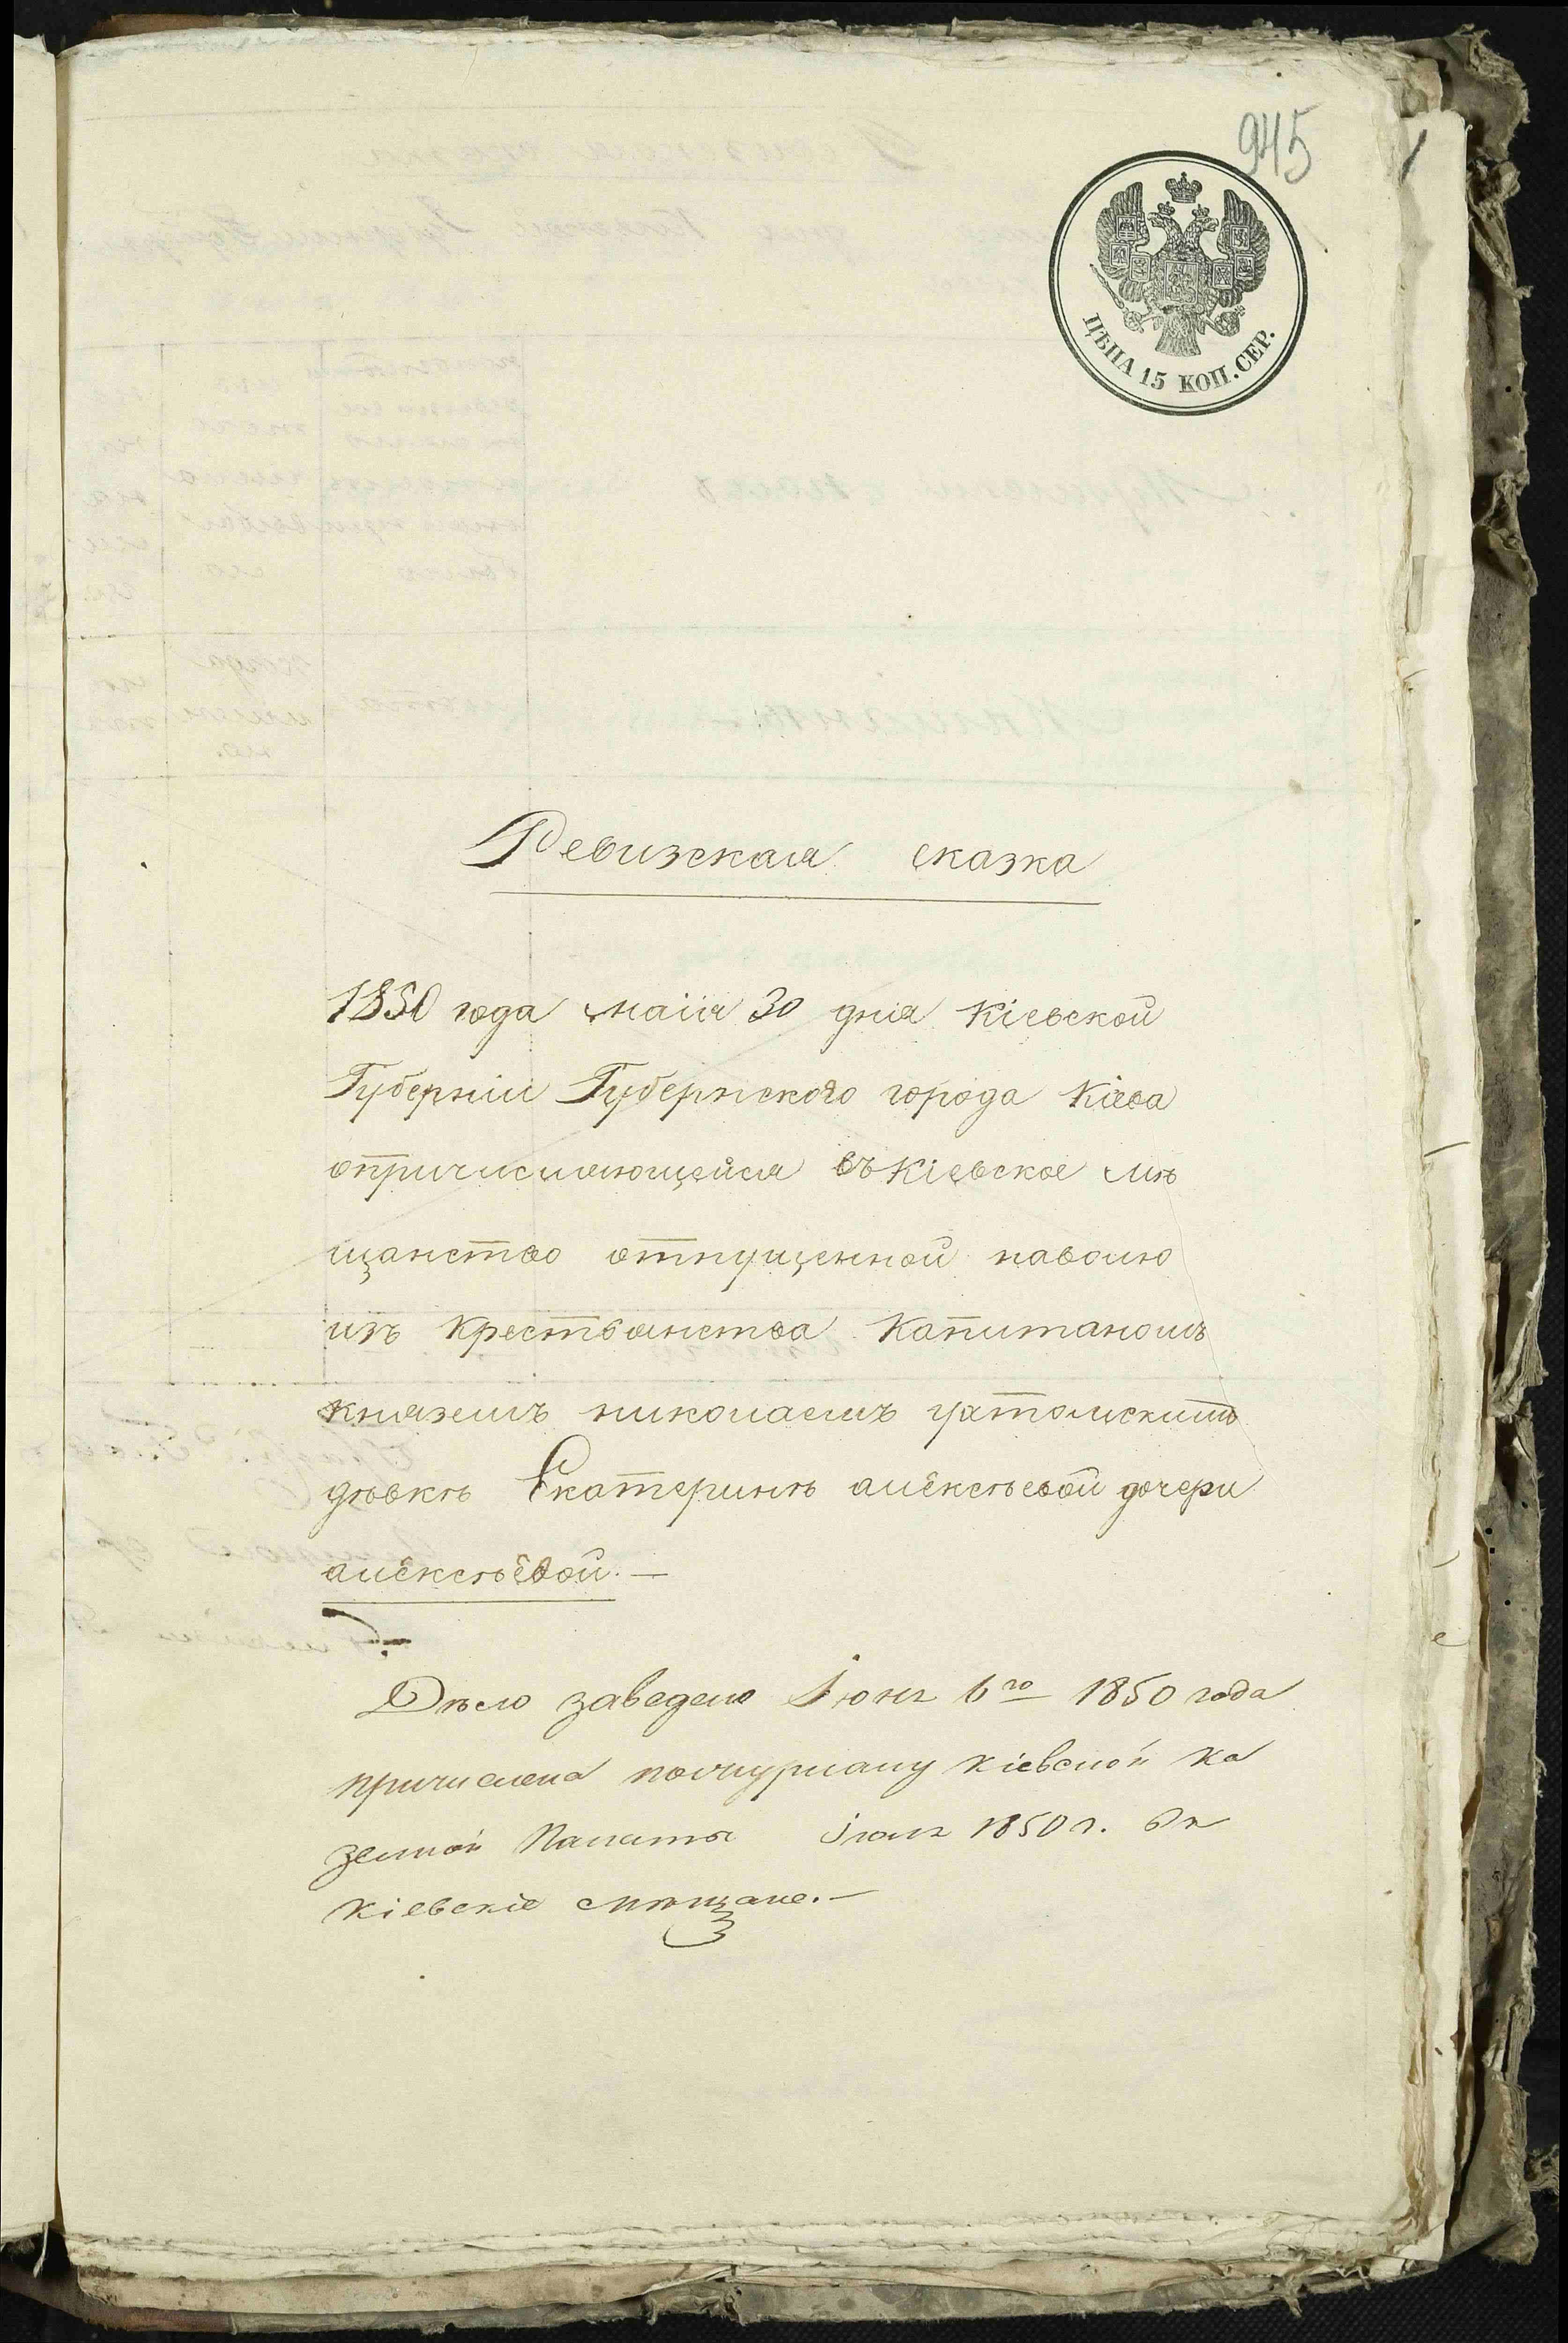 945
ЦѢНА 15 КОП. СЕР.
Ревизская сказка
1850 года маія 30 дня Кіевской
Губерніи Губернского города Кіева
опричисляющейся въ Кіевское мѣ
щанство отпущенной наволю
изъ крестьянства Капитаномъ
княземъ николаемъ
дѣвкѣ Екатеринѣ алексѣевой дочери
алексѣевой. —
Дѣло заведено Іюня 6го 1850 года
причислена пожурналу Кіевской Ка
зенной Палаты Іюля 1850 г. въ
Кіевскіе мѣщане. —